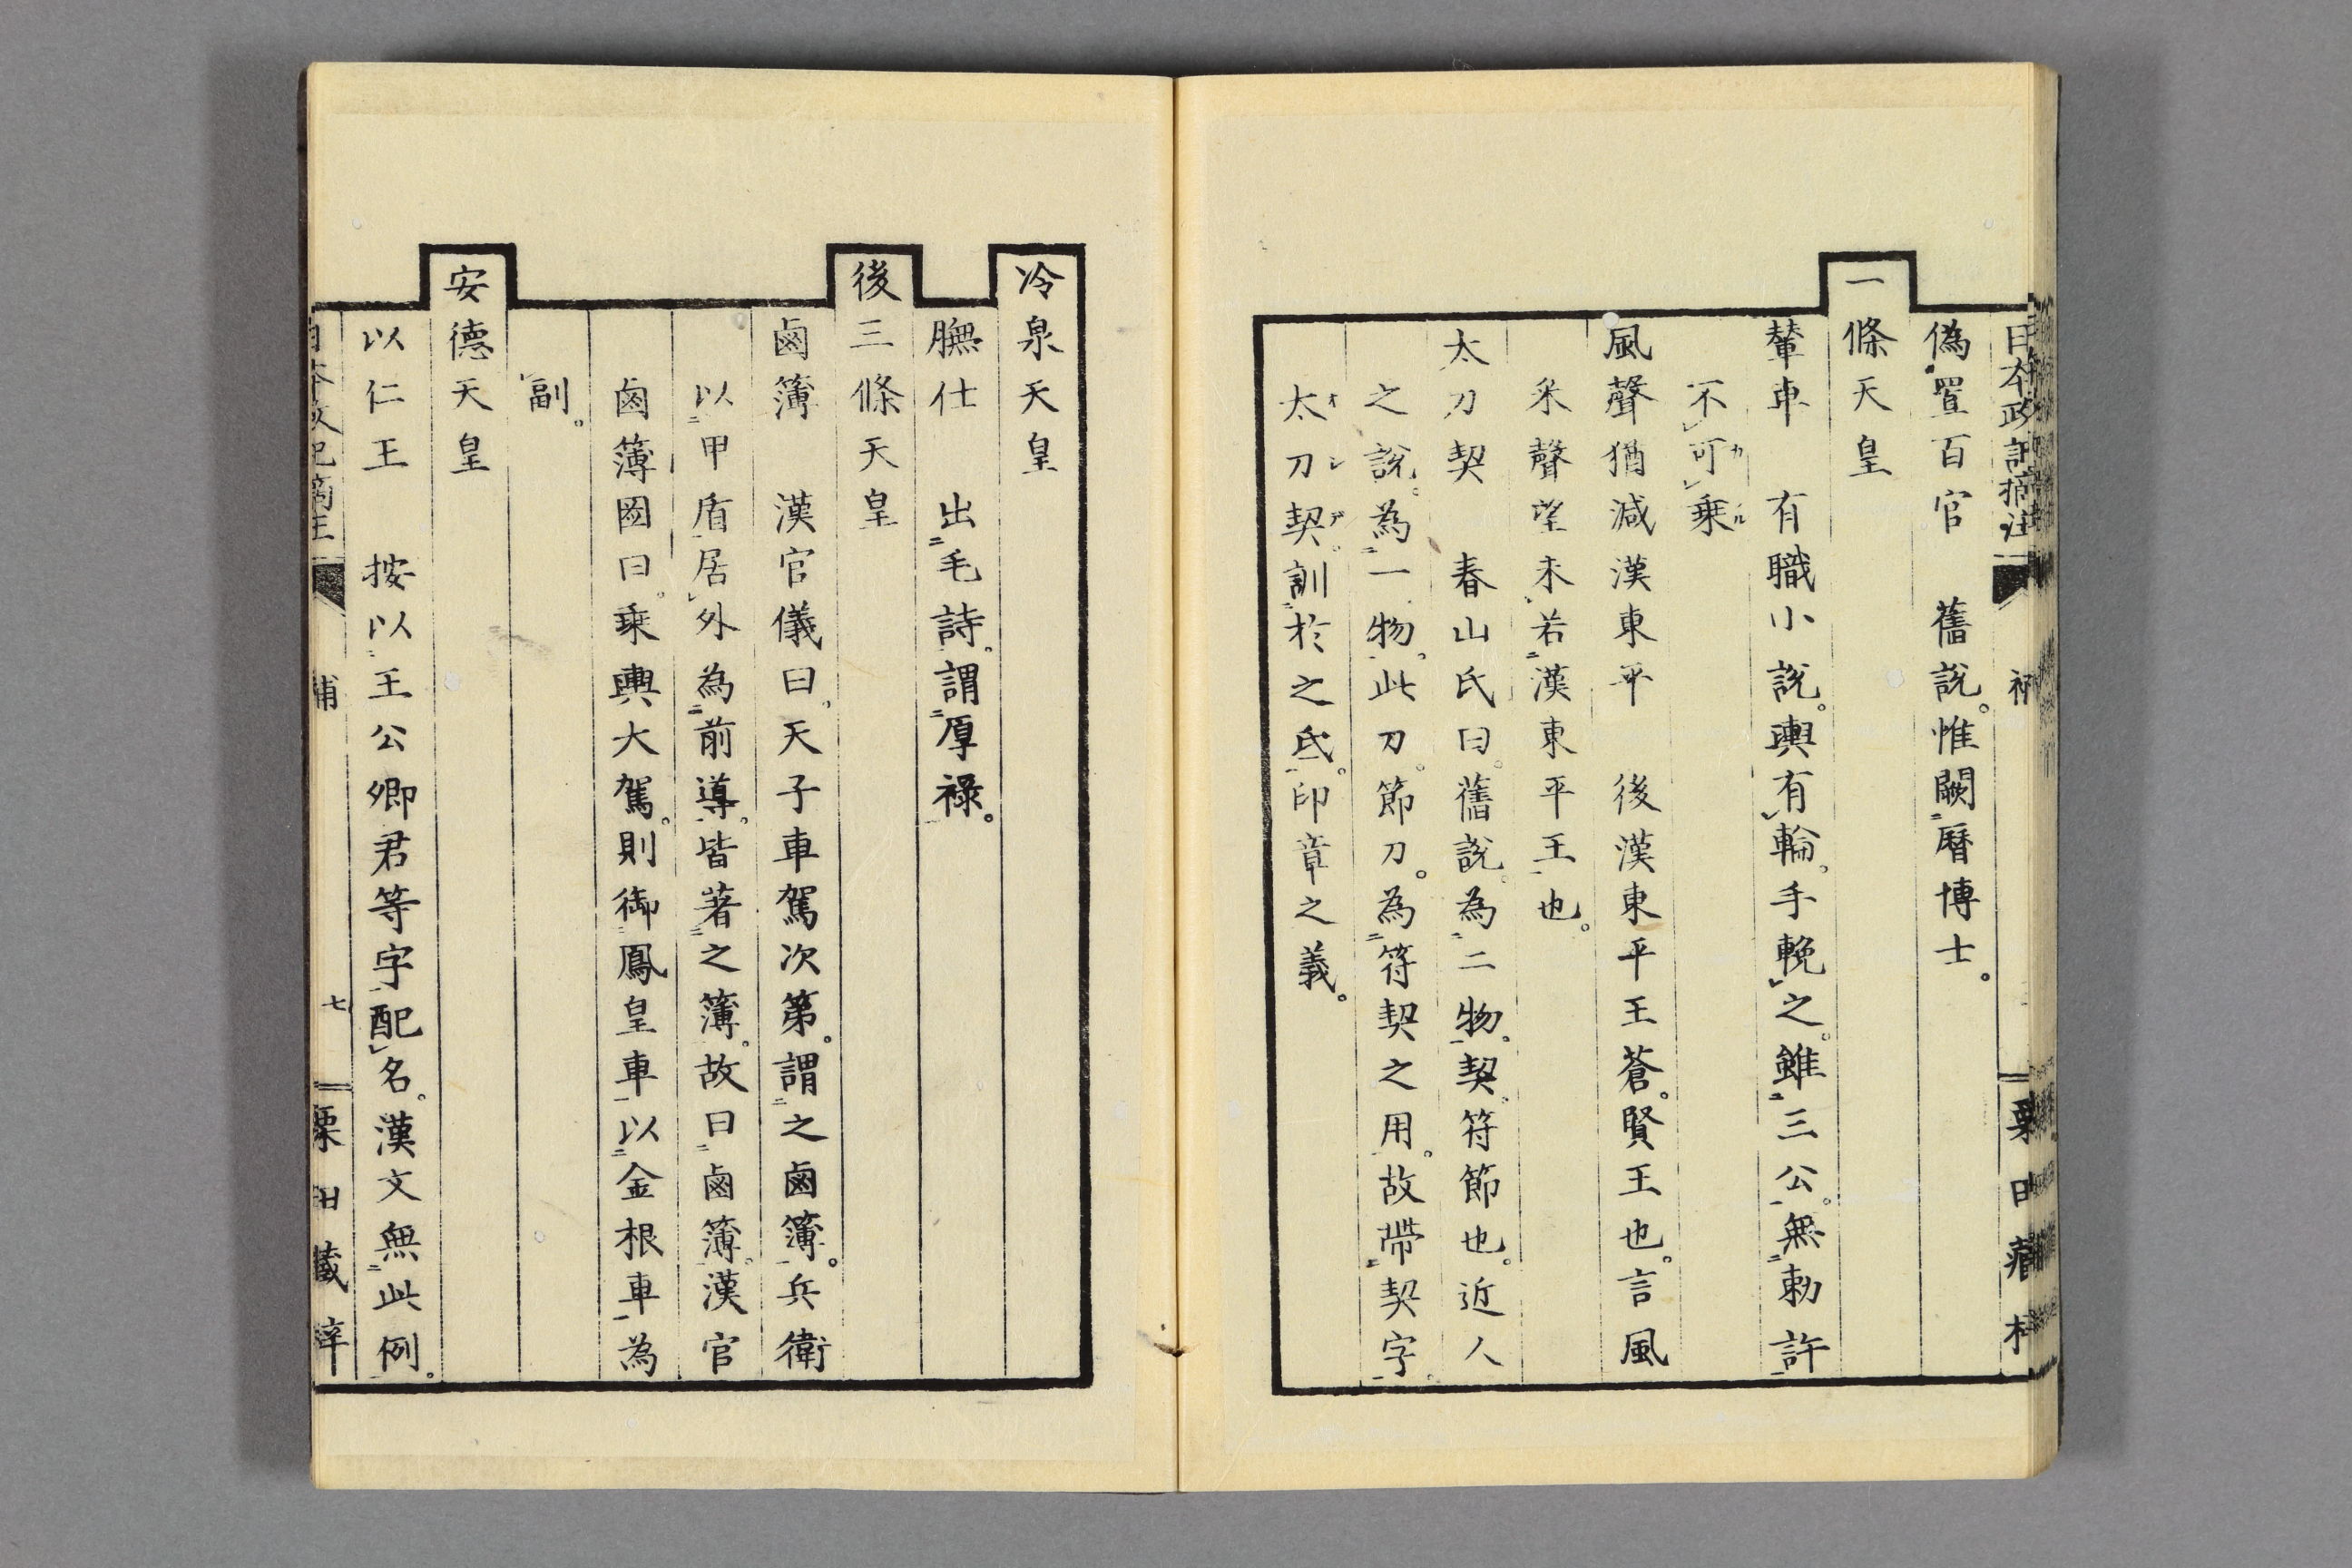 日本政記摘注
補
偽置百官　舊說。惟闕曆博士。
一條天皇
輦車　有職小說。輿有輪。手輓之。雖三公。無勅許
不可乗
風聲猶減漢東平　後漢東平王蒼。賢王也。言風
采聲望未若漢東平王也。
太刀契　春山氏曰。舊說。為二物。契。符節也。近人
之說。為一物。此刀。節刀。為符契之用。故帶契字。
太刀契。訓於之氐。印章之義。
冷泉天皇
膴仕　出毛詩。謂厚祿。
後三條天皇
鹵簿　漢官儀曰。天子車駕次第。謂之鹵簿。兵衛
以甲盾居外為前導。皆著之簿。故曰鹵簿。漢官
鹵簿圖曰。乗輿大駕。則御鳳皇車以金根車為
副。
安德天皇
以仁王　按以王公卿君等字配名。漢文無此例。
補
七
栗田藏梓